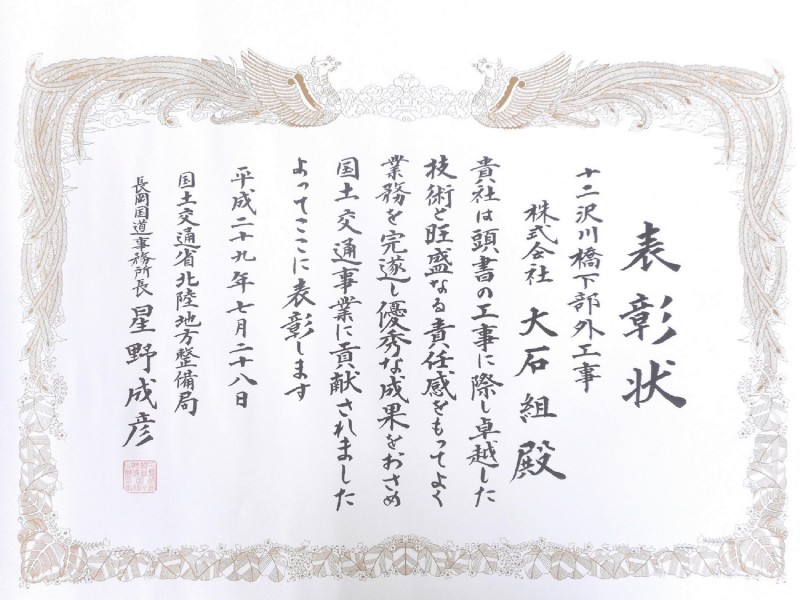 表彰状
十二沢川橋下部外工事
株式会社 大石組 殿
貴社は頭書の工事に際し卓越した
技術と旺盛なる責任感をもってよく
業務を完遂し優秀な成果をおさめ
国土交通事業に貢献されました
よってここに表彰します
平成二十九年七月二十八日
国土交通省北陸地方整備局
長岡国道事務所長 星野成彦